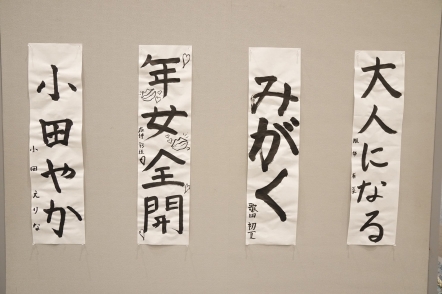 大人になる
みがく
年女全開
小田やか
小田えりな